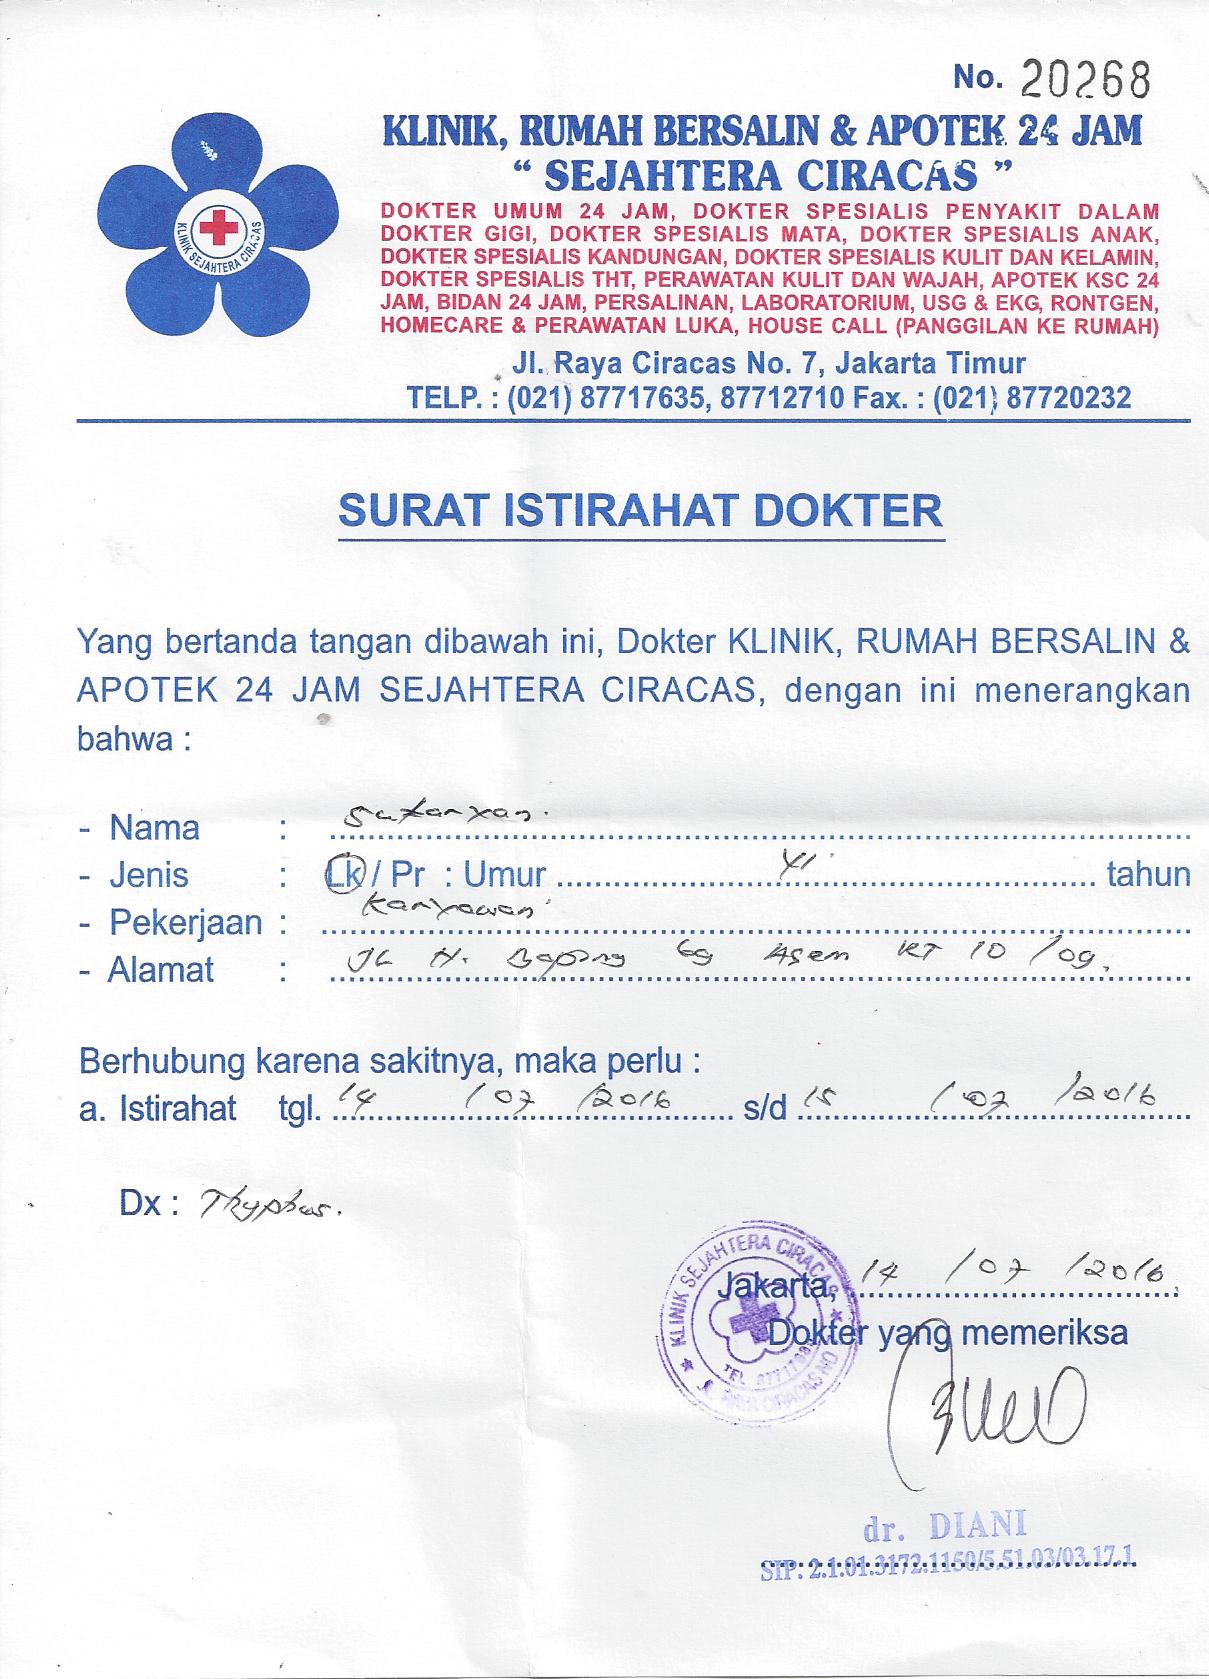 No. 20268
KLINIK, RUMAH BERSALIN & APOTEK 24 JAM
“ SEJAHTERA CIRACAS ”
DOKTER UMUM 24 JAM, DOKTER SPESIALIS PENYAKIT DALAM
DOKTER GIGI, DOKTER SPESIALIS MATA, DOKTER SPESIALIS ANAK,
DOKTER SPESIALIS KANDUNGAN, DOKTER SPESIALIS KULIT DAN KELAMIN,
DOKTER SPESIALIS THT, PERAWATAN KULIT DAN WAJAH, APOTEK KSC 24
JAM, BIDAN 24 JAM, PERSALINAN, LABORATORIUM, USG & EKG, RONTGEN,
HOMECARE & PERAWATAN LUKA, HOUSE CALL (PANGGILAN KE RUMAH)
KLINIK SEJAHTERA CIRACAS
Jl. Raya Ciracas No. 7, Jakarta Timur
TELP. : (021) 87717635, 87712710 Fax. : (021) 87720232
SURAT ISTIRAHAT DOKTER
Yang bertanda tangan dibawah ini, Dokter KLINIK, RUMAH BERSALIN &
APOTEK 24 JAM SEJAHTERA CIRACAS, dengan ini menerangkan
bahwa :
- Nama :
- Jenis : Lk / Pr : Umur 41 tahun
- Pekerjaan : Karyawan
- Alamat : JL H. Baping Gg Asem RT 10 /09.
Berhubung karena sakitnya, maka perlu :
a. Istirahat tgl. 14 /07 /2016 s/d 15 /07 /2016
Dx : Thyphus.
KLINIK SEJAHTERA CIRACAS
Jakarta, 14 /07 /2016.
Dokter yang memeriksa
JL. RAYA CIRACAS NO
dr. DIANI
SIP: 2.1.01.3172.1150/5.51.03/03.17.1